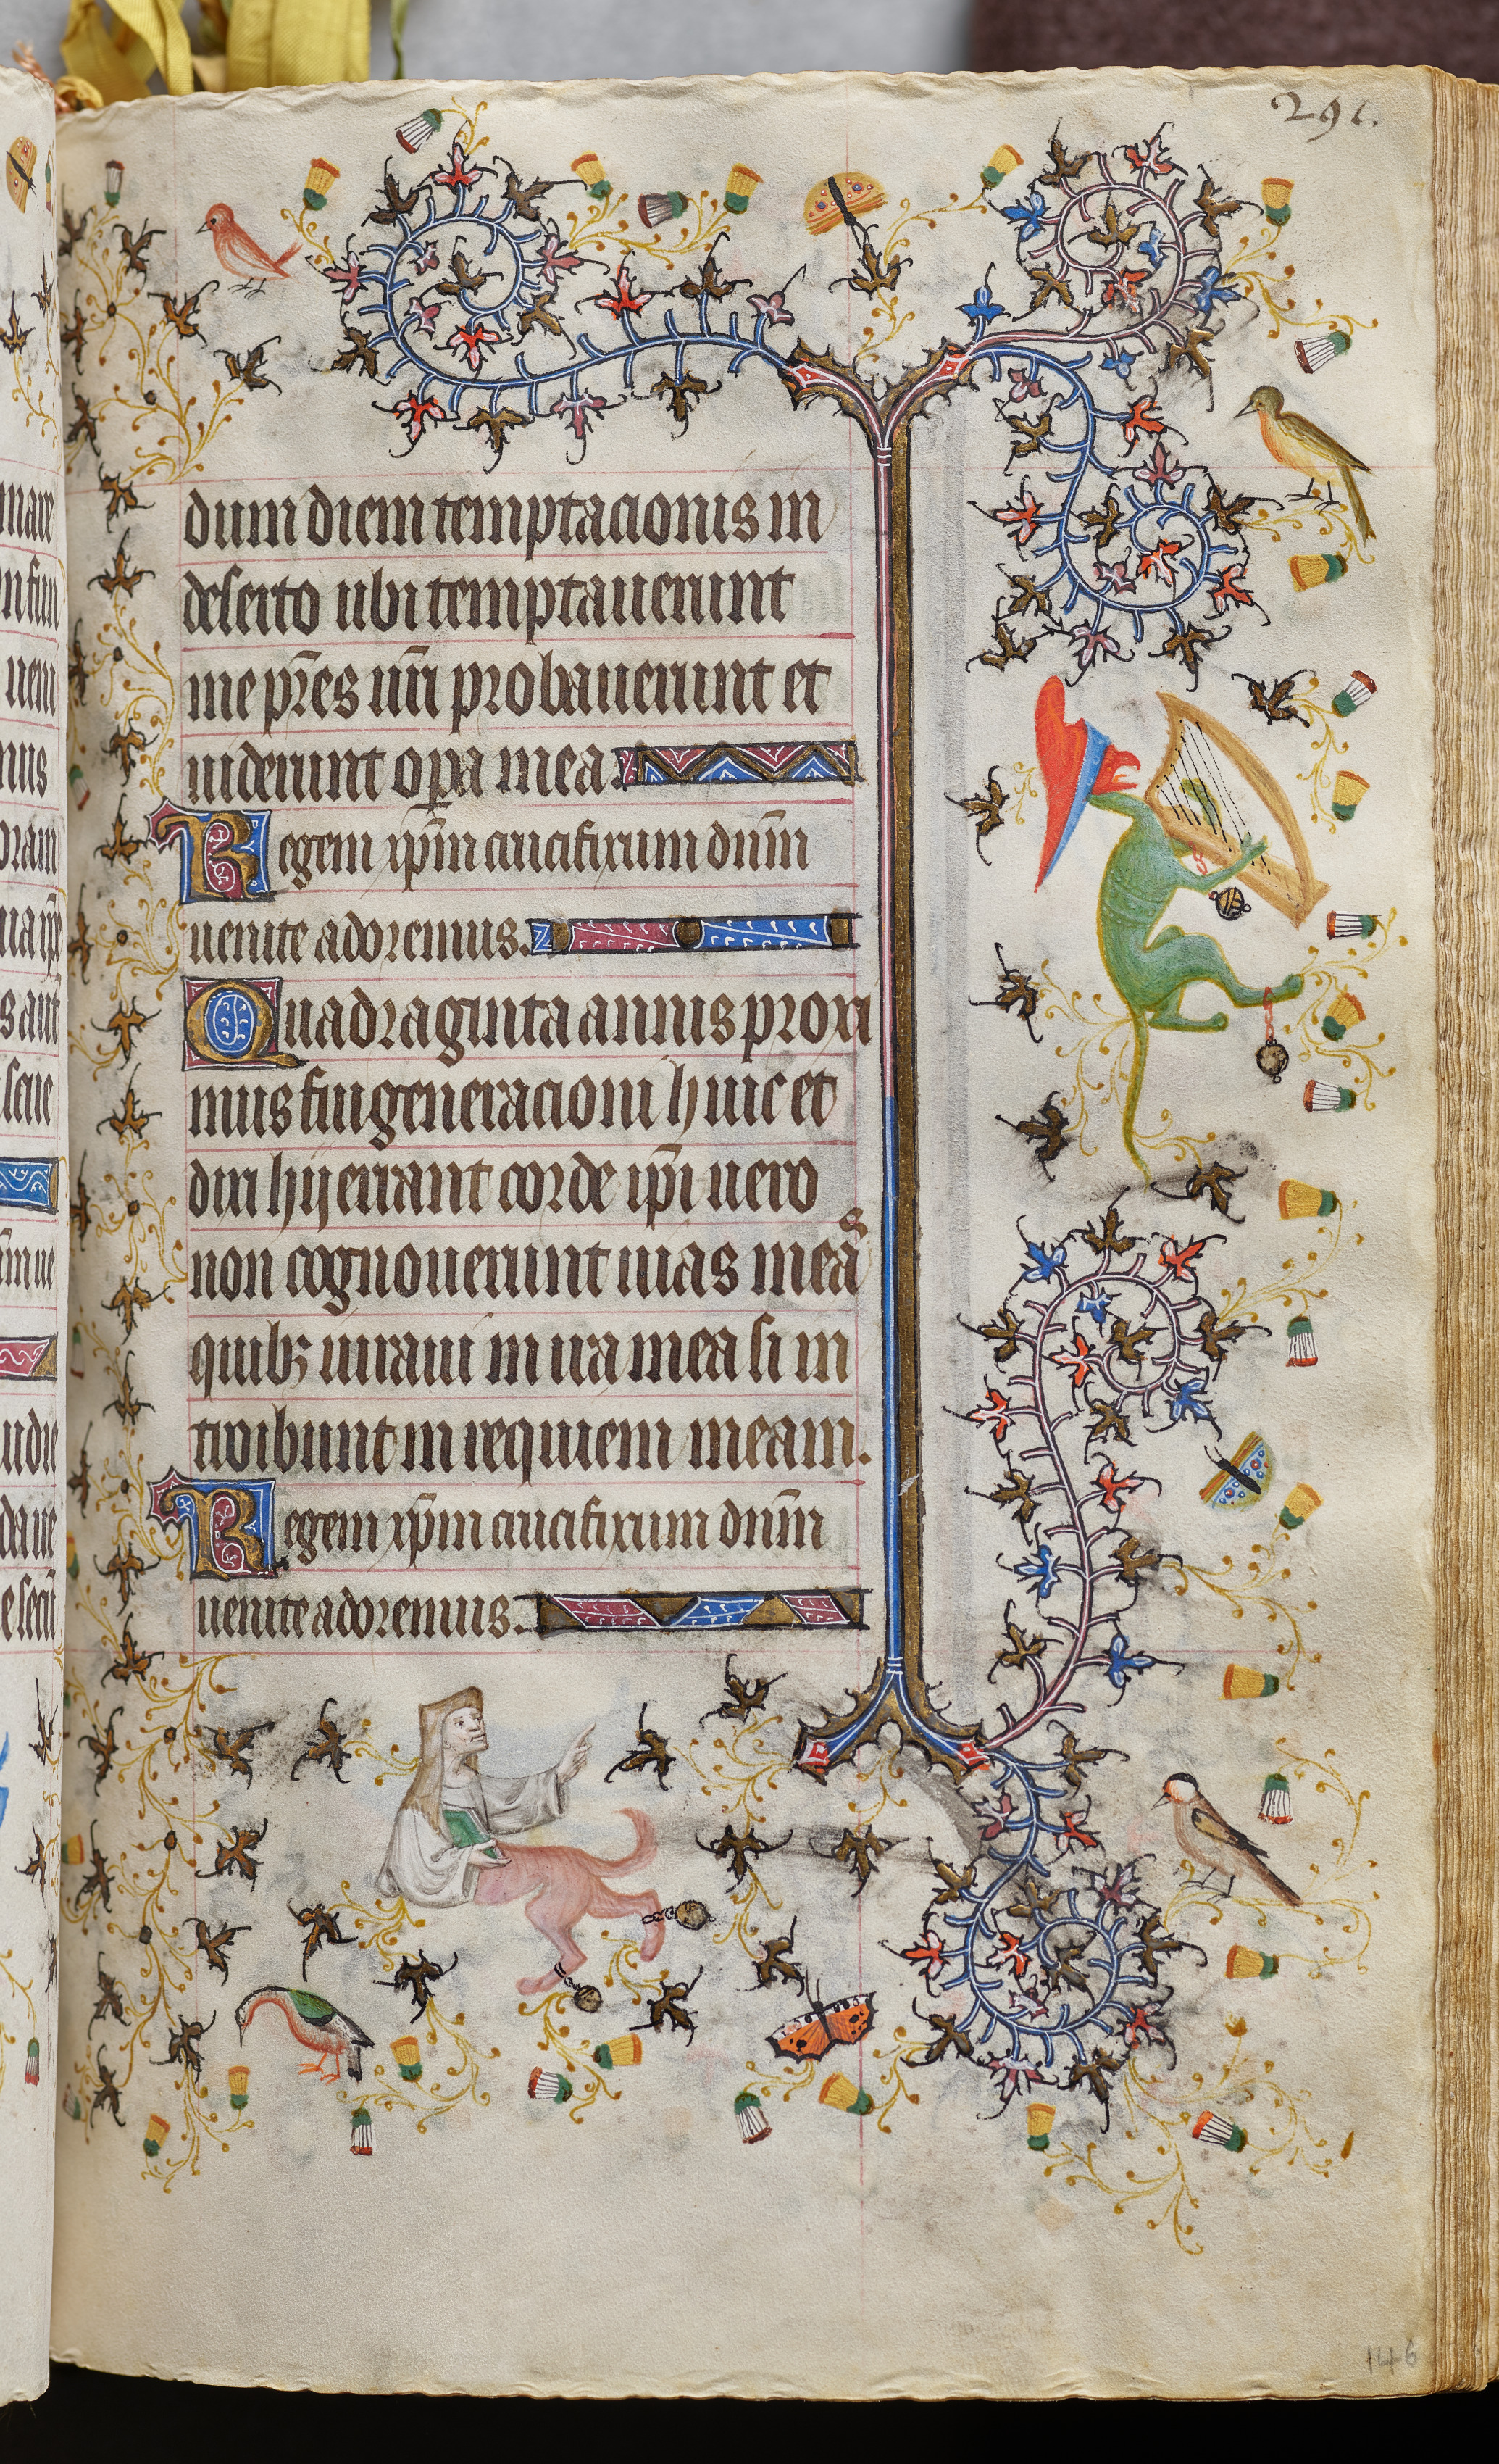 291.
dum diem temptacionis in
deserto ubi temptauerunt
me pr̄es ur̄i probauerunt et
uiderunt op̲a mea.
Regem xp̄m crucifixum dnm̄
uenite adoremus.
Quadraginta annis proxi
mus fui generacioni huic et
dixi hij errant corde ip̄i uero
non cognouerunt uias meas
quibꝫ iuraui in ira mea si in
troibunt in requiem meam.
Regem xp̄m crucifixum dnm̄
uenite adoremus.
146